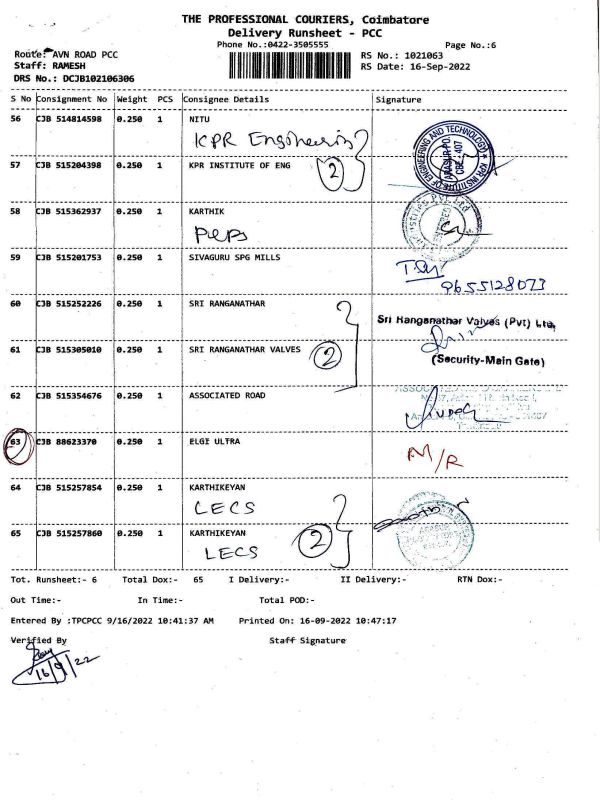 THE PROFESSIONAL COURIERS, Coimbatore
Delivery Runsheet - PCC
Phone No.:0422-3505555 Page No.:6
Route: AVN ROAD PCC RS No.: 1021063
Staff: RAMESH RS Date: 16-Sep-2022
DRS No.: DCJB102106306
S No Consignment No Weight PCS Consignee Details Signature
56 CJB 514814598 0.250 1 NITU
KPR Engineerin
57 CJB 515204398 0.250 1 KPR INSTITUTE OF ENG 2
KPR INSTITUTE OF ENGINEERING AND TECHNOLOGY
ARASUR-PO. CBE - 407
58 CJB 515362937 0.250 1 KARTHIK
59 CJB 515201753 0.250 1 SIVAGURU SPG MILLS
9655128073
60 CJB 515252226 0.250 1 SRI RANGANATHAR
Sri Ranganathar Valves (Pvt) Ltd,
61 CJB 515305010 0.250 1 SRI RANGANATHAR VALVES 2
(Security-Main Gate)
62 CJB 515354676 0.250 1 ASSOCIATED ROAD
63 CJB 88623370 0.250 1 ELGI ULTRA
M/R
64 CJB 515257854 0.250 1 KARTHIKEYAN
LECS
65 CJB 515257860 0.250 1 KARTHIKEYAN 2
LECS
Tot. Runsheet:- 6 Total Dox:- 65 I Delivery:- II Delivery:- RTN Dox:-
Out Time:- In Time:- Total POD:-
Entered By :TPCPCC 9/16/2022 10:41:37 AM Printed On: 16-09-2022 10:47:17
Verified By Staff Signature
16/9/22